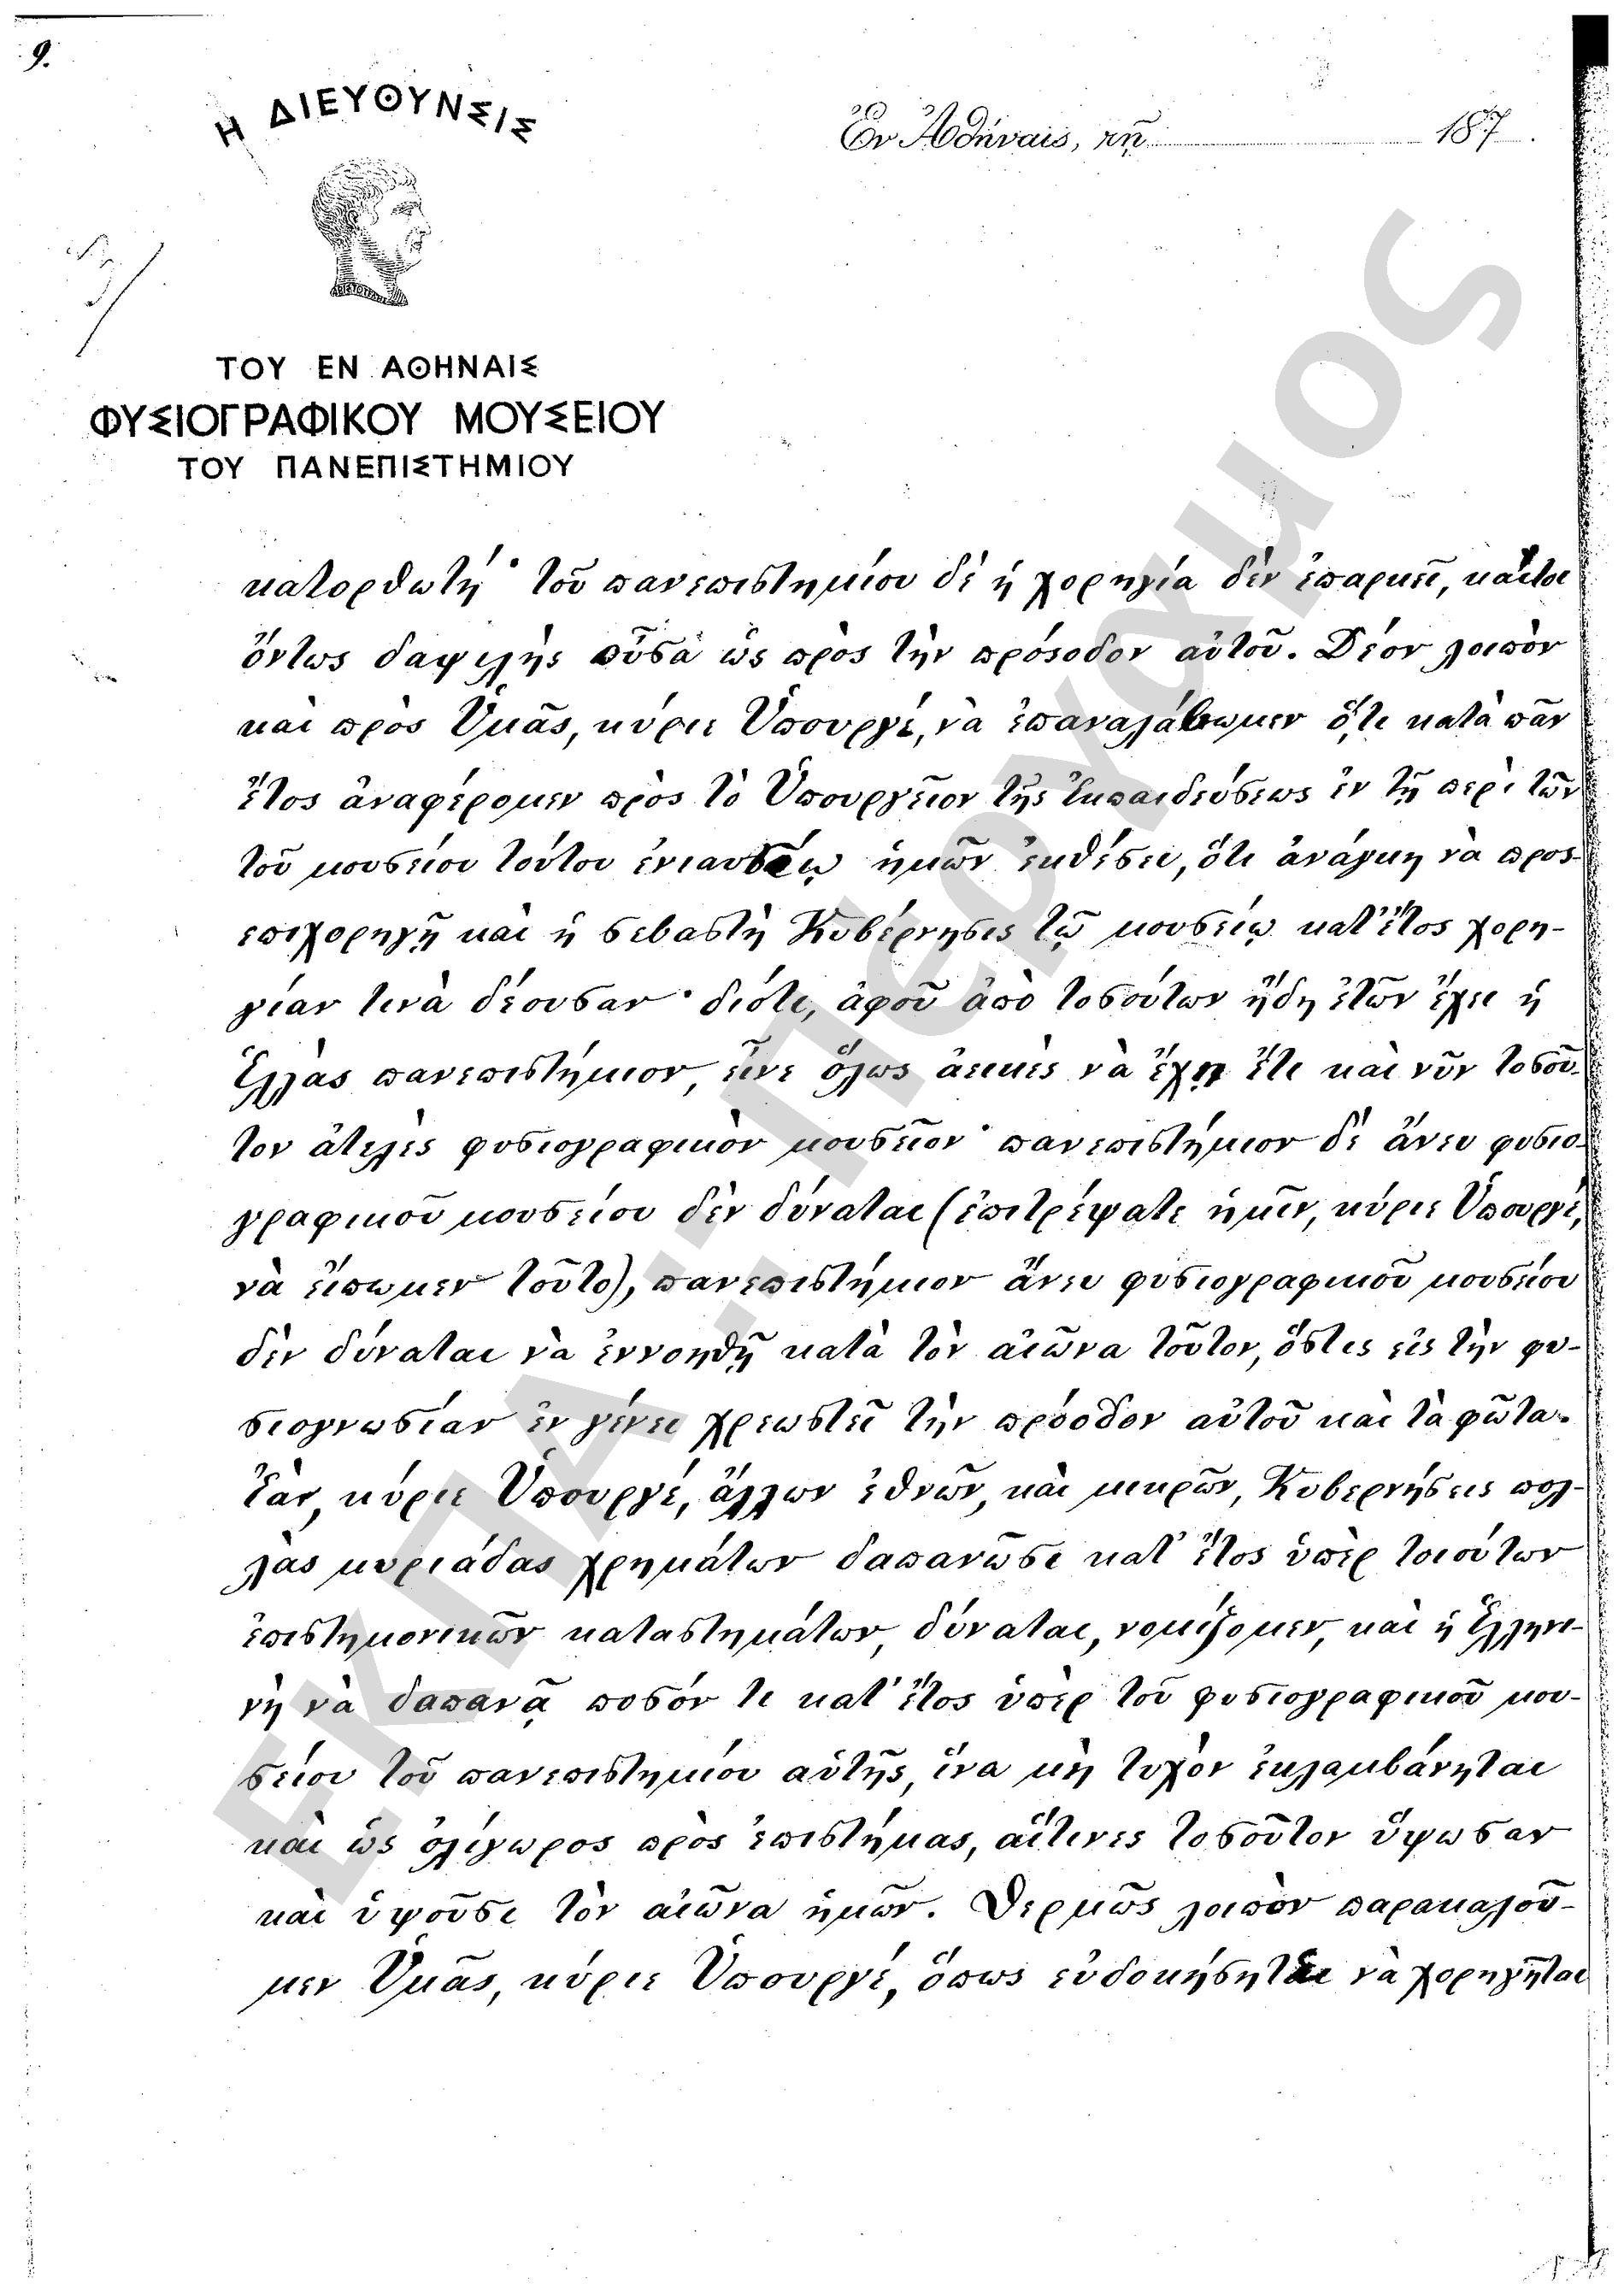 9.
Η ΔΙΕΥΘΥΝΣΙΣ
Ἐν Ἀθήναις, τῇ 187 .
ΤΟΥ ΕΝ ΑΘΗΝΑΙΣ
ΦΥΣΙΟΓΡΑΦΙΚΟΥ ΜΟΥΣΕΙΟΥ
ΤΟΥ ΠΑΝΕΠΙΣΤΗΜΙΟΥ
κατορθωτή· τοῦ πανεπιστημίου δὲ ἡ χορηγία δὲν ἐπαρκεῖ, καίτοι
ὄντως δαψιλὴς οὖσα ὡς πρὸς τὴν πρόσοδον αὐτοῦ. Δέον λοιπὸν
καὶ πρὸς Ὑμᾶς, κύριε Ὑπουργέ, νὰ ἐπαναλάβωμεν ὅ,τι κατὰ πᾶν
ἔτος ἀναφέρομεν πρὸς τὸ Ὑπουργεῖον τῆς Ἐκπαιδεύσεως ἐν τῇ περὶ τῶν
τοῦ μουσείου τούτου ἐνιαυσίῳ ἡμῶν ἐκθέσει, ὅτι ἀνάγκη νὰ προς-
επιχορηγῇ καὶ ἡ σεβαστὴ Κυβέρνησις τῷ μουσείῳ κατ' ἔτος χορη-
γίαν τινὰ δέουσαν· διότι, ἀφοῦ ἀπὸ τοσούτων ἤδη ἐτῶν ἔχει ἡ
Ἑλλὰς πανεπιστήμιον, εἶνε ὅλως ἀεικὲς νὰ ἔχῃ ἔτι καὶ νῦν τοσοῦ-
τον ἀτελὲς φυσιογραφικὸν μουσεῖον· πανεπιστήμιον δὲ ἄνευ φυσιο-
γραφικοῦ μουσείου δὲν δύναται (ἐπιτρέψατε ἡμῖν, κύριε Ὑπουργέ,
νὰ εἴπωμεν τοῦτο), πανεπιστήμιον ἄνευ φυσιογραφικοῦ μουσείου
δὲν δύναται νὰ ἐννοηθῇ κατὰ τὸν αἰῶνα τοῦτον, ὅστις εἰς τὴν φυ-
σιογνωσίαν ἐν γένει χρεωστεῖ τὴν πρόοδον αὐτοῦ καὶ τὰ φῶτα.
Ἐάν, κύριε Ὑπουργέ, ἄλλων ἐθνῶν, καὶ μικρῶν, Κυβερνήσεις πολ-
λὰς μυριάδας χρημάτων δαπανῶσι κατ' ἔτος ὑπὲρ τοιούτων
ἐπιστημονικῶν καταστημάτων, δύναται, νομίζομεν, καὶ ἡ Ἑλληνι-
κὴ νὰ δαπανᾷ ποσόν τι κατ' ἔτος ὑπὲρ τοῦ φυσιογραφικοῦ μου-
σείου τοῦ πανεπιστημίου αὐτῆς, ἵνα μὴ τυχὸν ἐκλαμβάνηται
καὶ ὡς ὀλίγωρος πρὸς ἐπιστήμας, αἵτινες τοσοῦτον ὕψωσαν
καὶ ὑψοῦσι τὸν αἰῶνα ἡμῶν. Θερμῶς λοιπὸν παρακαλοῦ-
μεν Ὑμᾶς, κύριε Ὑπουργέ, ὅπως εὐδοκήσητε νὰ χορηγῆται
ΕΚΠΑ.:Πέργαμος